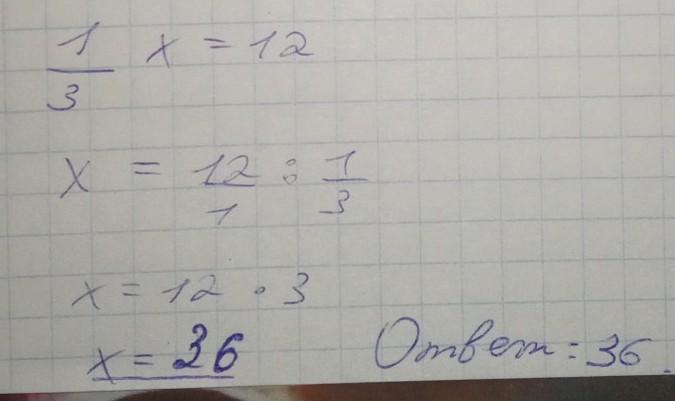 1/3 x = 12
x = 12/1 : 1/3
x = 12 · 3
x = 36
Ответ: 36.